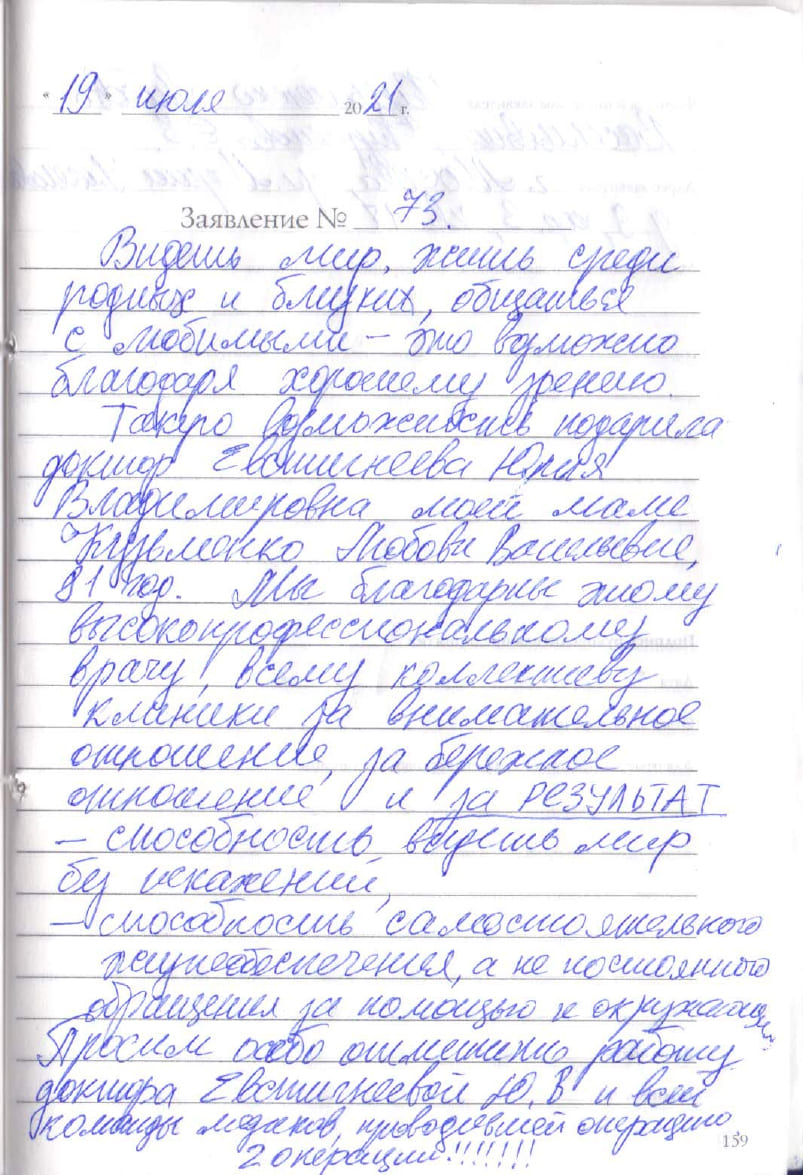 "19" июля 2021 г.
Заявление № 73.
Видеть мир, жить среди
родных и близких, общаться
с любимыми – это возможно
благодаря хорошему зрению.
Такую возможность подарила
доктор Евстигнеева Юлия
Владимировна моей маме
Кузьменко Любови Васильевне,
81 год. Мы благодарны этому
высокопрофессиональному
врачу, всему коллективу
клиники за внимательное
отношение, за бережное
отношение и за РЕЗУЛЬТАТ
– способность видеть мир
без искажений,
– способность самостоятельного
жизнеобеспечения, а не постоянного
обращения за помощью к окружающим
Просим особо отметить работу
доктора Евстигнеевой Ю.В и всей
команды медиков, проводившей операцию,
2 операции!!!!!!!
159